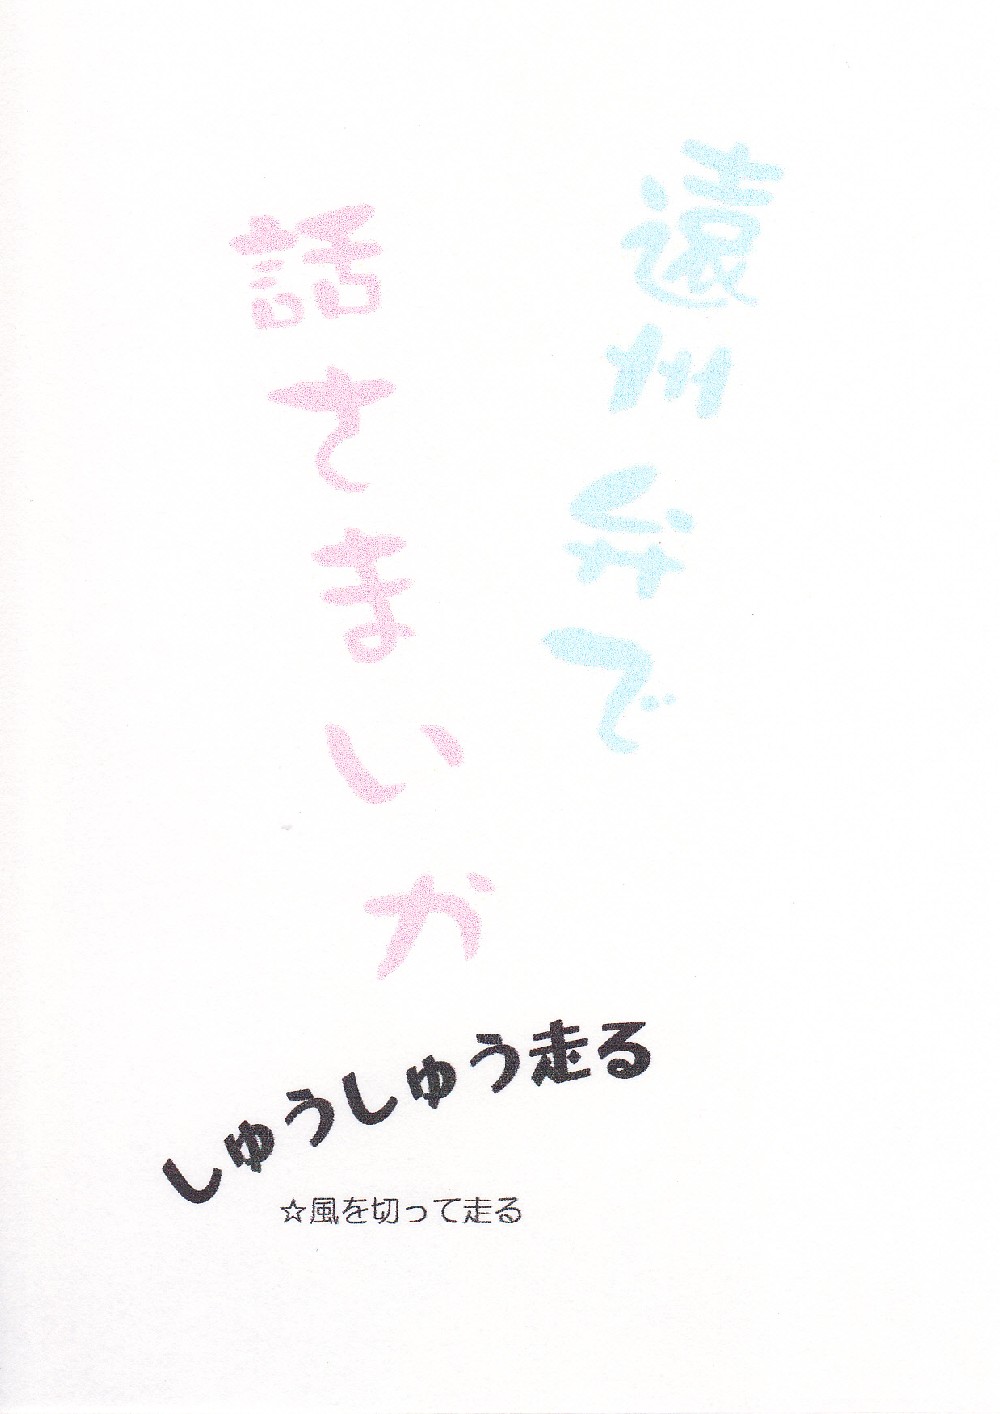 遠州弁で
話さまいか
しゅうしゅう走る
☆風を切って走る